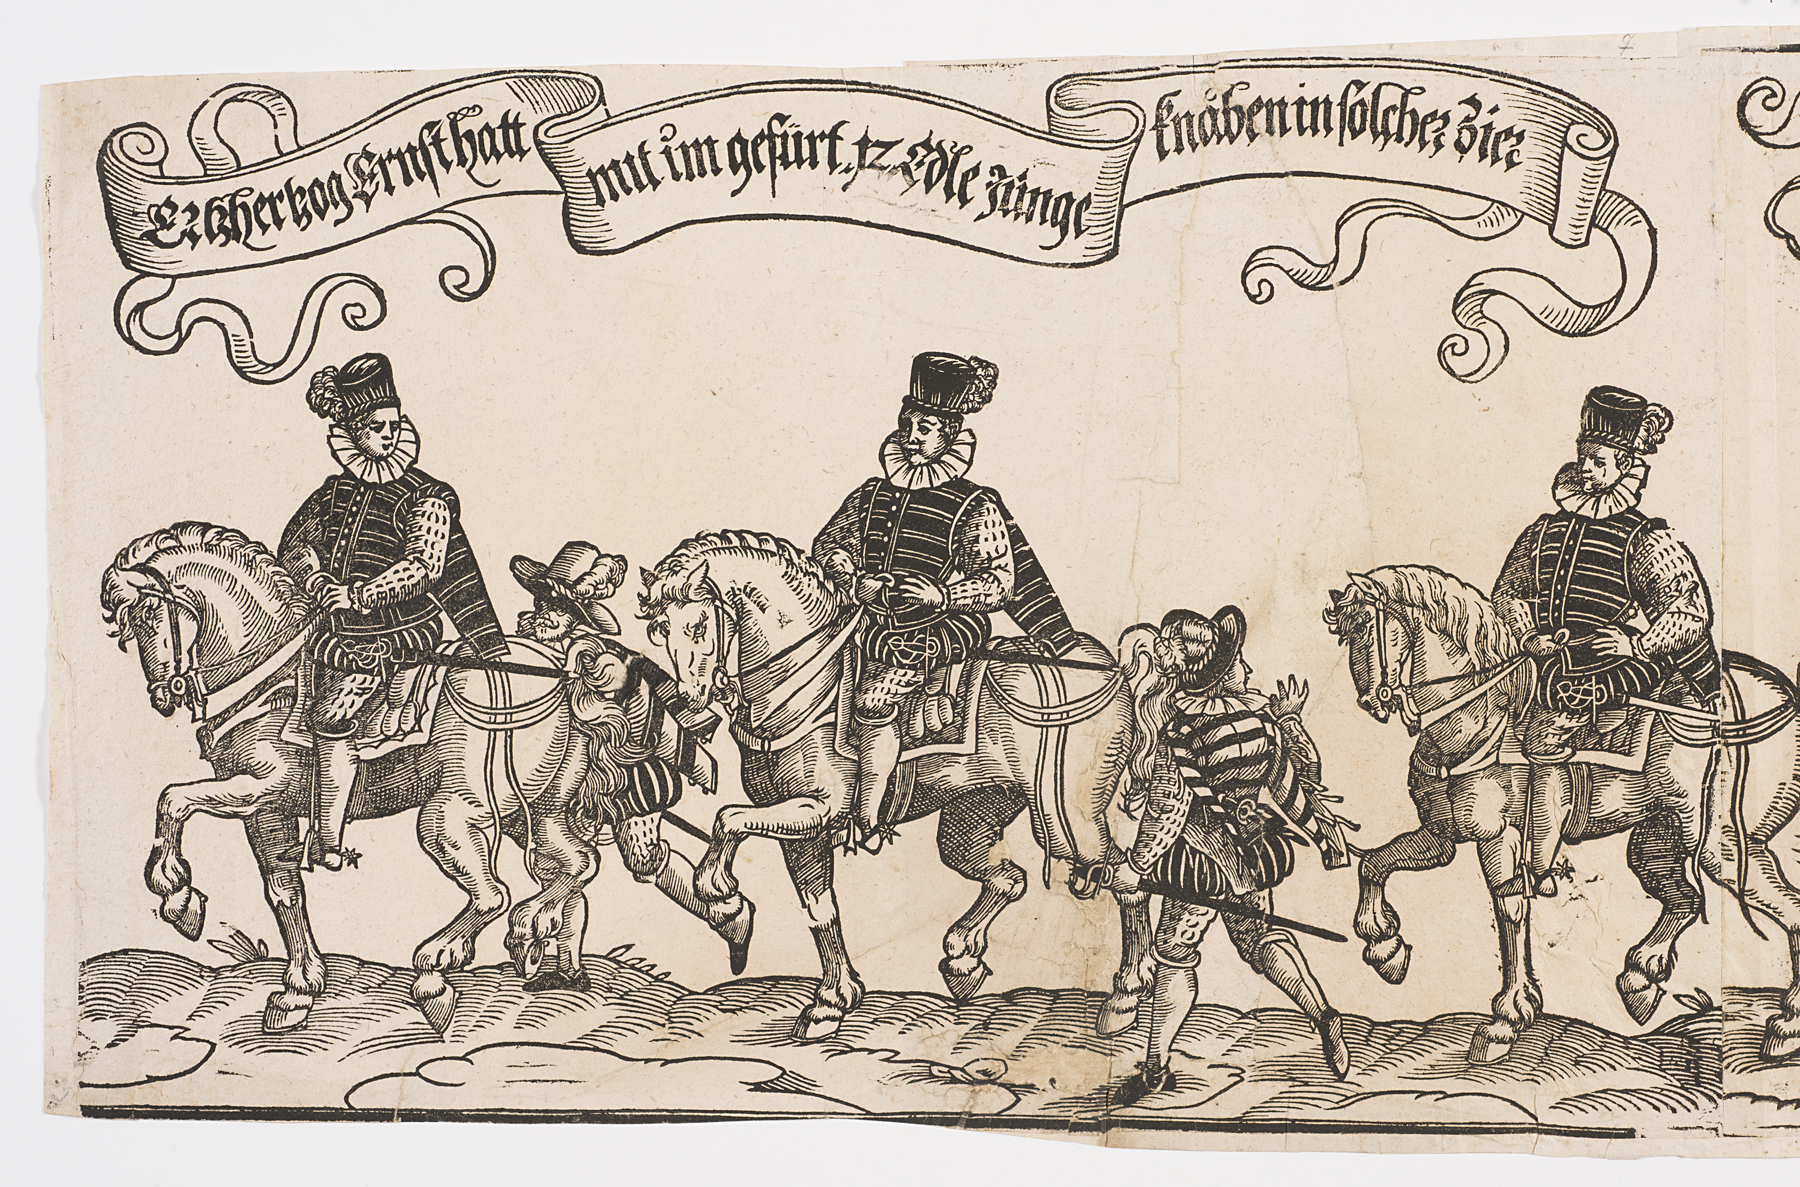 Ertzhertzog Ernst hatt
mit im gefürt. 12 Edle Junge
knåben in solcher Zier
7